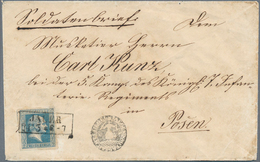 Soldatenbrief
Dem
Musketier Herrn
Carl Kunz
bei der 3. Komp. des Königl. 7. Infan-
terie-Regiment
in
Posen